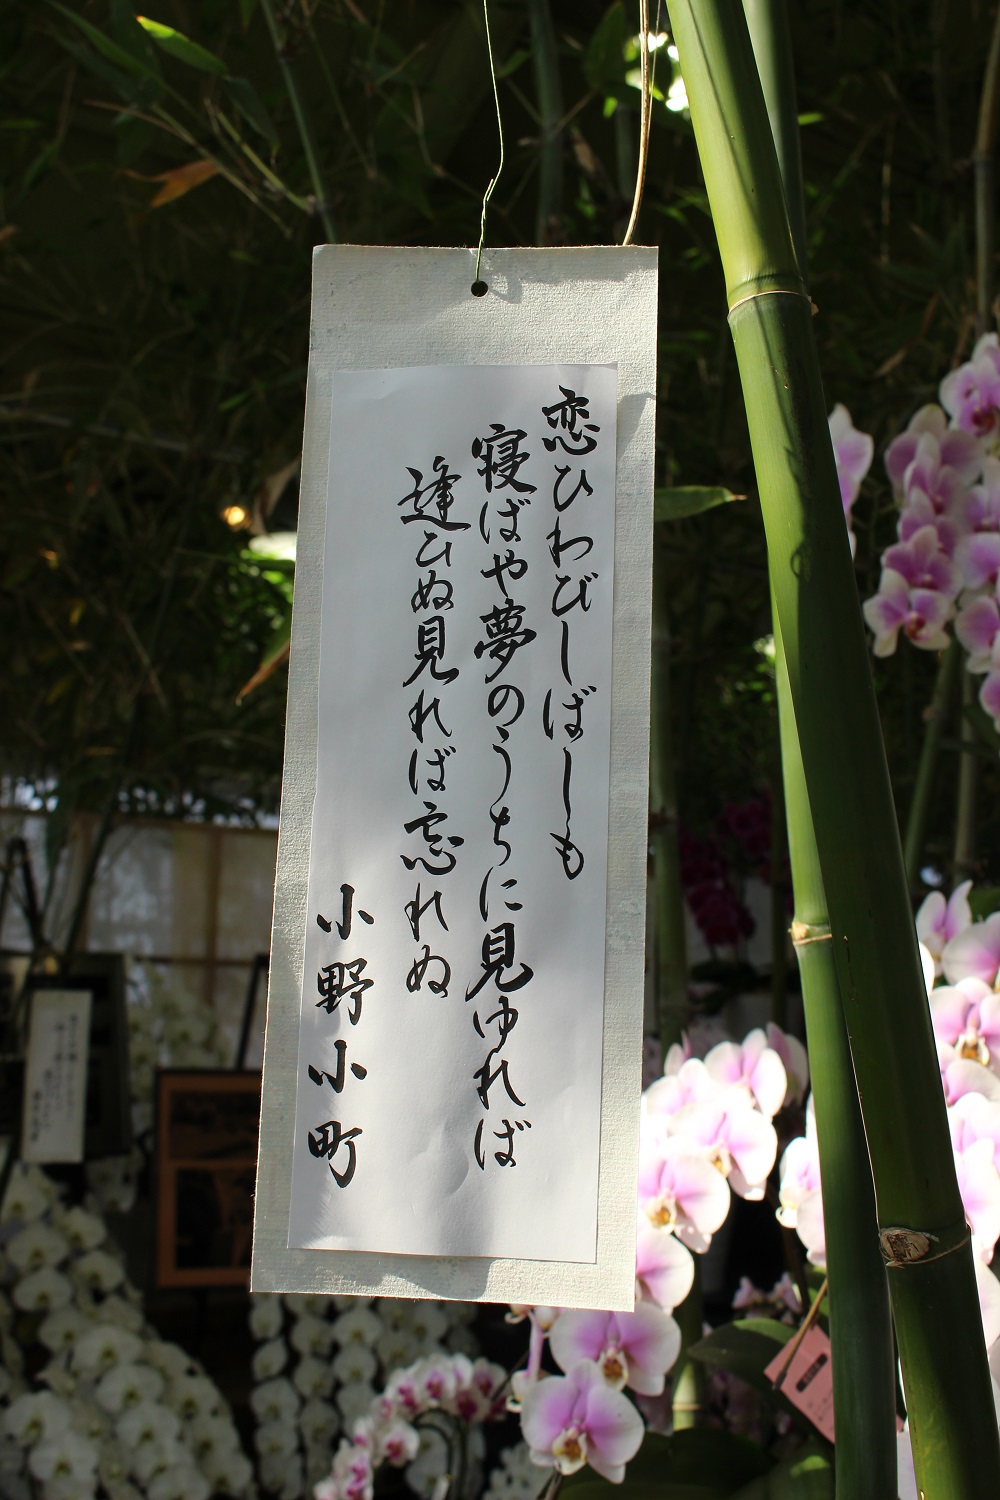 恋ひわびしばしも
寝ばや夢のうちに見ゆれば
逢ひぬ見れば忘れぬ
小野小町